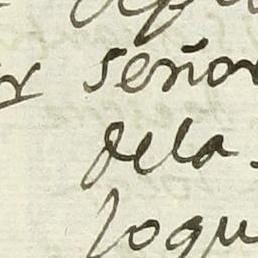 señor
dela
loqu